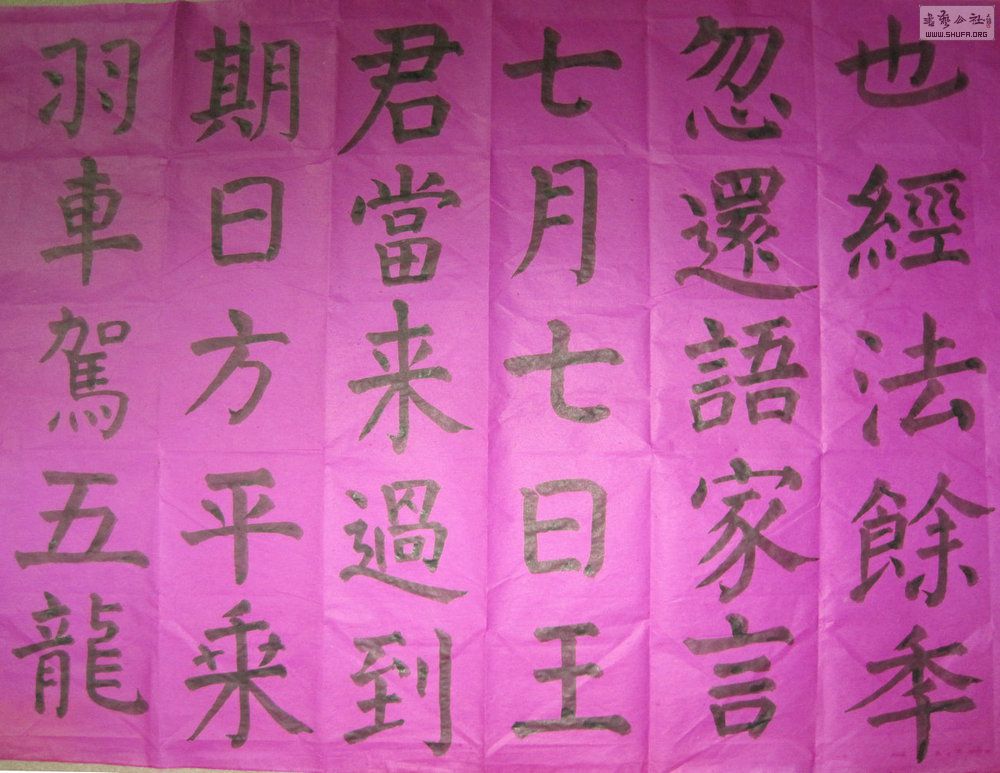 也經法餘秊
忽還語家言
七月七日王
君當来過到
期日方平乗
羽車駕五龍
書藝公社
WWW.SHUFA.ORG